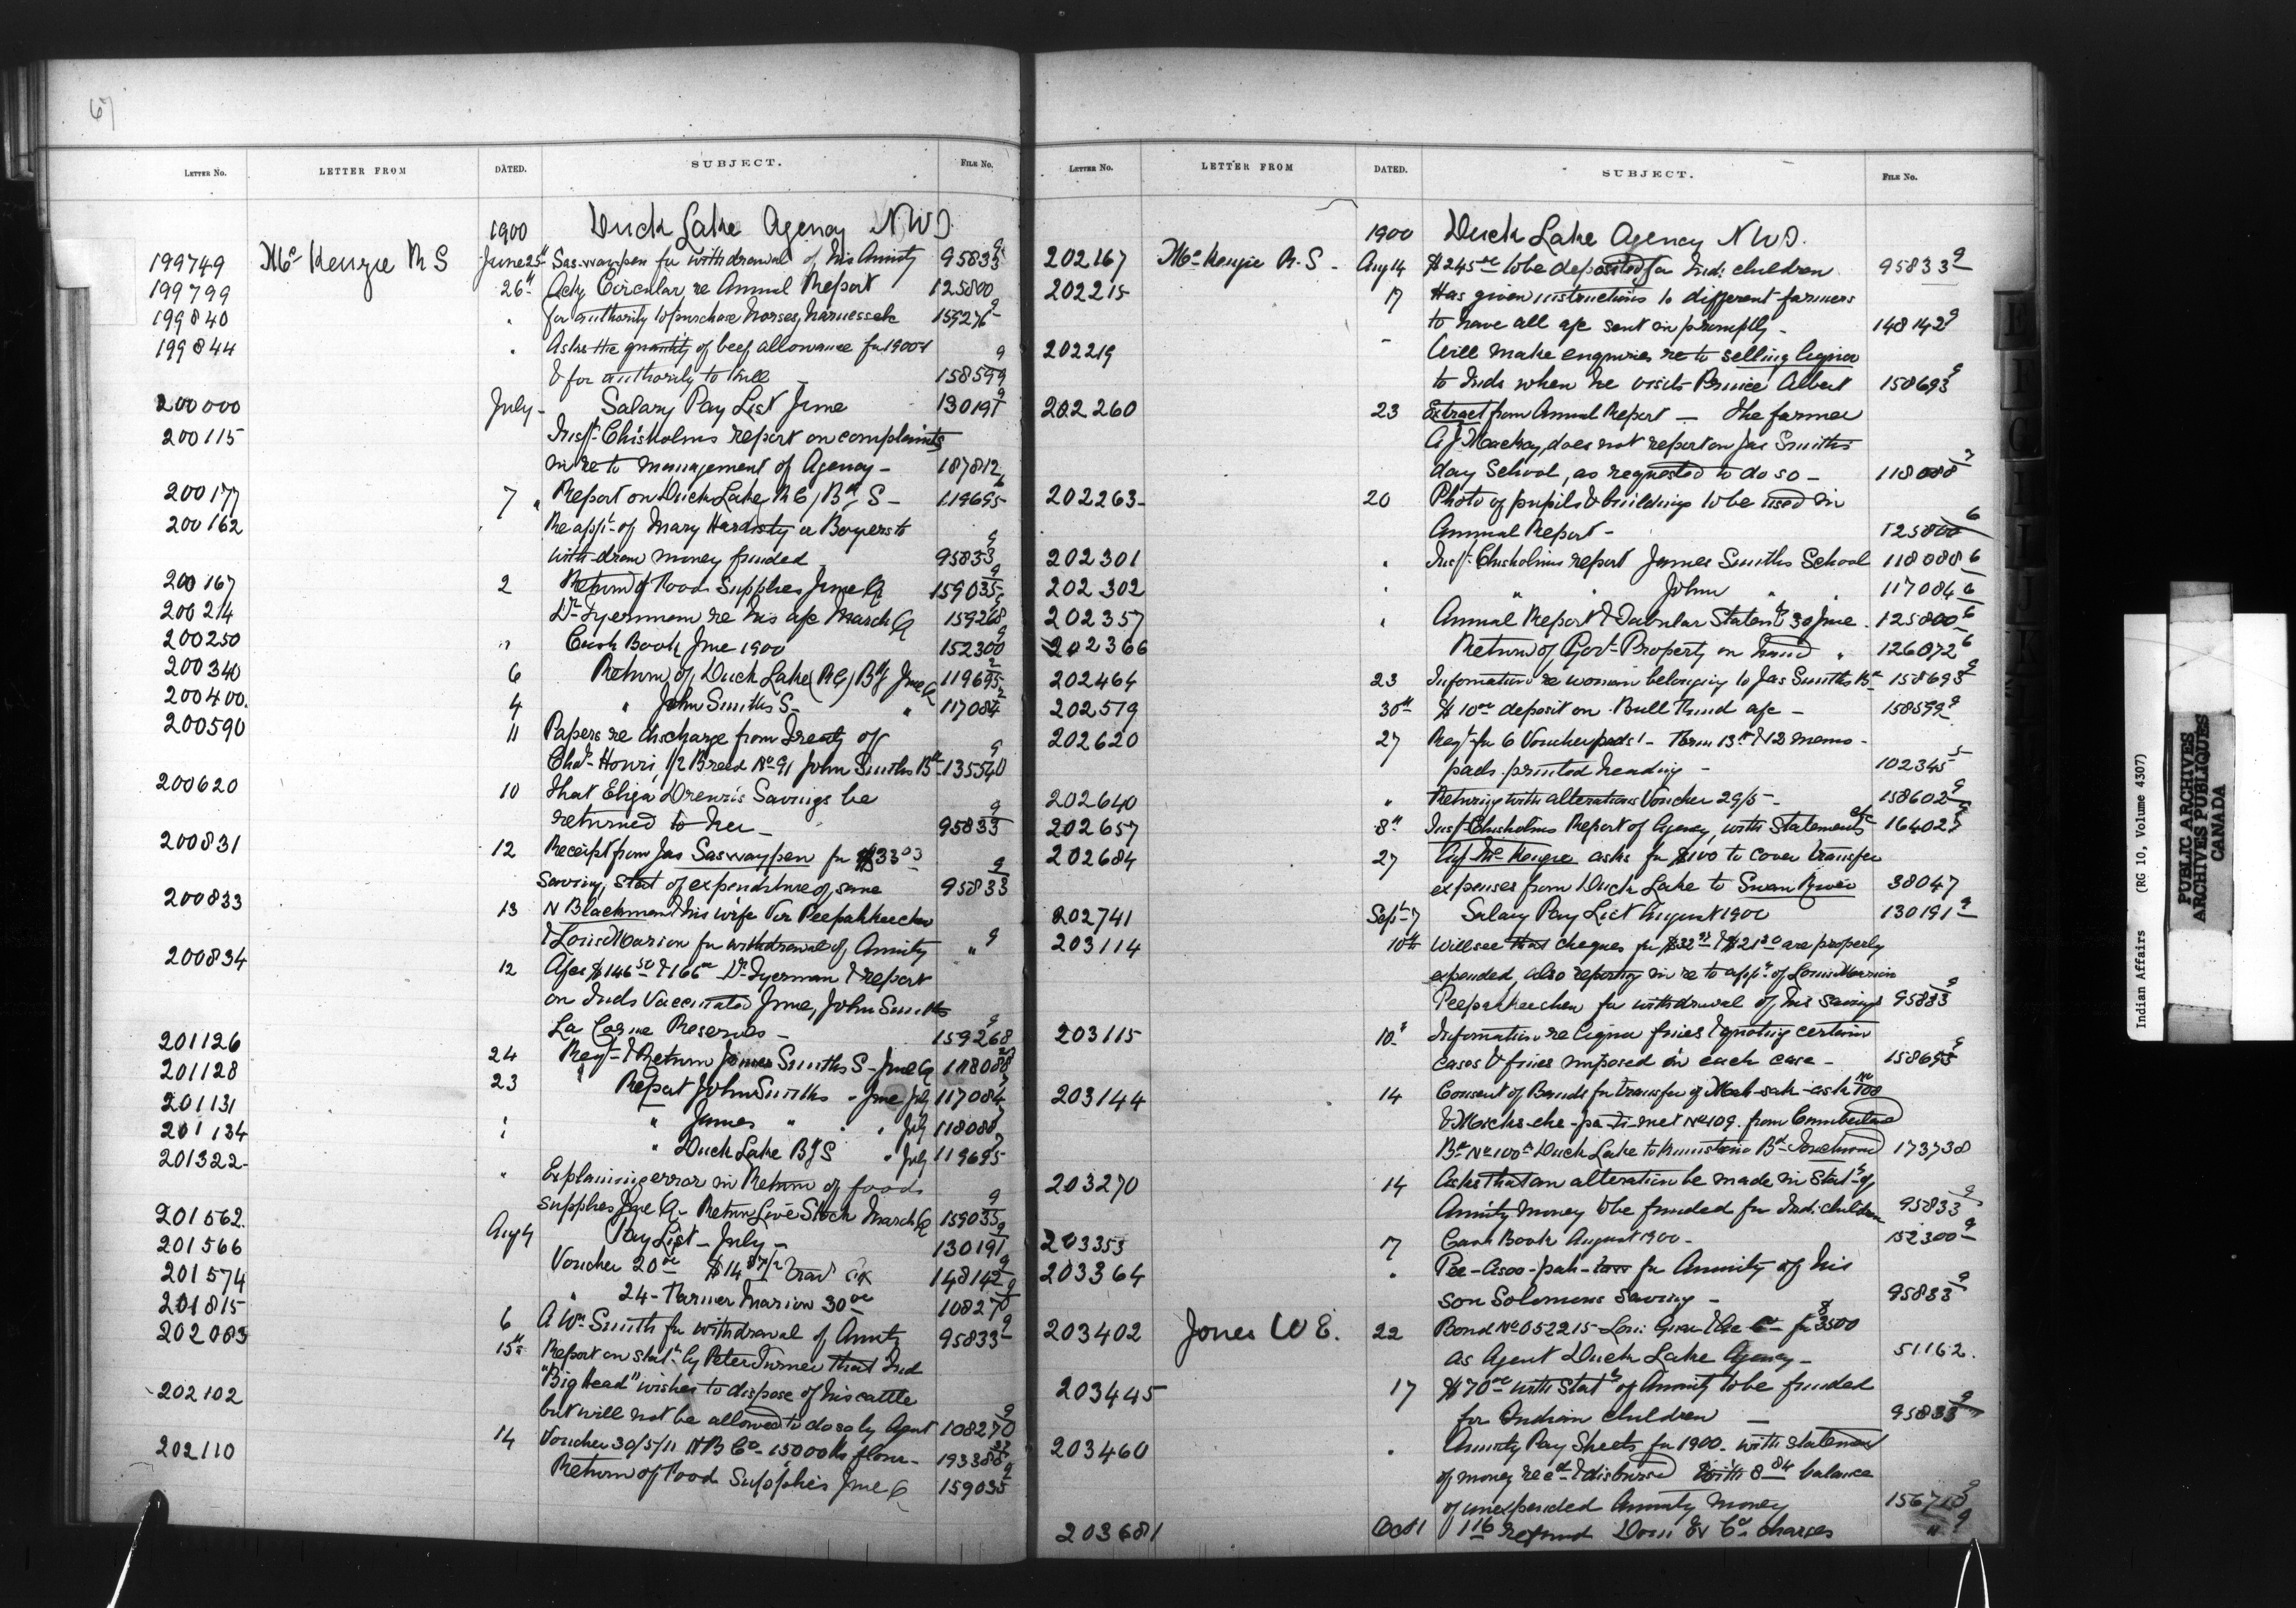 67
LETTER NO. LETTER FROM DATED. SUBJECT. FILE NO.
1900 Duck Lake Agency N.W.T.
199749 Mc Kenzie R S June 25 Sas-way-pen for withdrawal of his Annuity 95833 9
199799 26" Ackg Circular re Annual Report 125800
199840 " for authority to purchase horses, harness etc 159276 9
199844 " Asks the quantity of beef allowance for 1900-1
& for authority to kill 158599 9
200000 July - Salary Pay List June 130191 9
200115 Insp. Chisholms report on complaints
in re to management of Agency - 187812
200177 7 " Report on Duck Lake R C, Bdg S - 119695
200162 Re appt. of Mary Hardisty or Boyers to
with-draw money funded 95833 9
200167 2 Return of Food Supplies June Q 159035 9
200214 Dr Tyerman re his a/c March Q 159268
200250 " Cash Book June 1900 152300 9
200340 6 Return of Duck Lake (RC) Bdg June Q 119695 2
200400. 4 " John Smiths S - " 117084 2
200590 11 Papers re discharge from Treaty of
1/2 Breed No 91 John Smiths Bd 135540 9
200620 10 That Eliza Savings be
returned to her - 95833 9
200831 12 Receipt from Jas Saswaypen for $33 03
saving, Stat of expenditure of same 95833 9
200833 13 N Blackman & his wife Peepahkeechew
& Louis Marion for withdrawal of Annuity " 9
200834 12 A/cs $146 50 & 166 00 Dr Tyerman & report
on Inds Vaccinated June, John Smiths
La Corne Reserves - 159268 9
201126 24 Reqt. & Return James Smiths S - June Q 118088
201128 23 " Report John Smiths - June July 117084
201131 " " James " " " July 118088
201134 " " Duck Lake Bdg S " July 119695
201322 " Explaining error in Return of food
supplies June Q - Return Live Stock March Q 159035 9
201562. Aug 4 Pay List - July - 130191 9
201566 Voucher 20 $14 87 1/2 Trav Ex 148142 9
201574 " 24 - Farmer Marion 30 00 108270 9
201815 6 A Wm Smith for withdrawal of Annuity 95833 9
202083 15" Report on stat. by Peter Turner that Ind
"Big Head" wishes to dispose of his cattle
202102 but will not be allowed to do so by Agent 108270 9
14 Voucher 30/5/11 H B Co - 15000 lbs flour - 193388
202110 Return of Food Supplies June Q 159035 9
LETTER NO. LETTER FROM DATED. SUBJECT. FILE NO.
1900 Duck Lake Agency N.W.T.
202167 Mc Kenzie R. S - Aug 14 $245 00 to be deposited for Ind: children 95833 9
202215 17 Has given instructions to different farmers
to have all a/c sent in promptly - 148142 9
202219 - Will make enquiries re to selling liquor
to Inds when he visits Prince Albert 158693 9
202260 23 Extract from Annual Report - The farmer
A J Mackay, does not report on Jas Smiths
day School, as requested to do so - 118088 7
202263 - 20 Photo of pupils & buildings to be used in
Annual Report - 125800 6
202301 " Insp. Chisholms report James Smiths School 118088 6
202302 " " " John " " 117084 6
202357 " Annual Report & Tabular Statemt 30 June . 125800 6
202366 Return of Govt. Property on hand " 126072 6
202464 23 Information re woman belonging to Jas Smiths Bd 158693 9
202519 30th $10 00 deposit on Bull Fund a/c - 158599 9
202620 27 Reqt. for 6 Voucher pads - Form 13 & 12 memo -
pads printed heading - 102345 5
202640 " Returning with alterations Voucher 29/5 - 158602 9
202657 8th Insp. Chisholms Report of Agency, with Statements etc 164027
202684 27 Agt Mc Kenzie asks for $100 to cover transfer
expenses from Duck Lake to Swan River 38047
202741 Sept. 7 Salary Pay List August 1900 130191 9
203114 10th Will see that cheques for $32 & $21 are properly
expended, also reporting in re to appn. of Louis Marion
Peepahkeechew for withdrawal of his savings 95833 9
203115 10" Information re liquor fines & quoting certain
cases & fines imposed in each case - 158693 9
203144 14 Consent of Bands for transfer of No 108
No 109. from Cumberland
Bd No 100 A Duck Lake to Bd 173738
203270 14 Asks that an alteration be made in Stat. of
Annuity money to be funded for Ind: children 95833 9
203353 17 Cash Book August 1900 - 152300 9
203364 " for Annuity of his
son Solomons saving - 95833 9
203402 Jones W E. 22 Bond No 052215 Lon: Guar & Acc Co for $3500
as Agent Duck Lake Agency - 51162.
203445 17 $70 00 with Stat. of Annuity to be funded
for Indian children - 95833 9
203460 " Annuity Pay Sheets for 1900 - with statement
of money recd & disbursed with 8 84 balance
of unexpended Annuity money 156713 9
203681 Oct 1 1 16 refund Dom Ex Co charges " 9
Indian Affairs (RG 10, Volume 4307)
PUBLIC ARCHIVES
ARCHIVES PUBLIQUES
CANADA